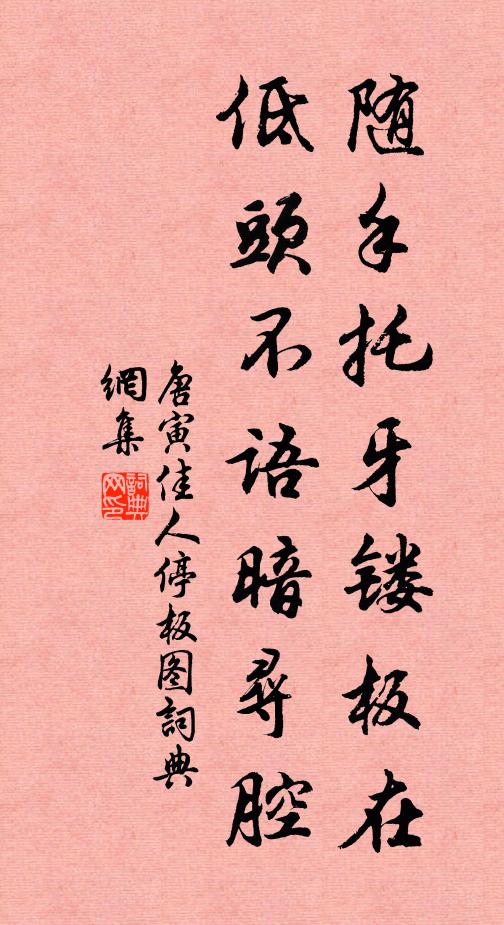 随手托牙镂板在
低頭不语暗尋腔
唐寅佳人停板图詞典
網集
詞典网印